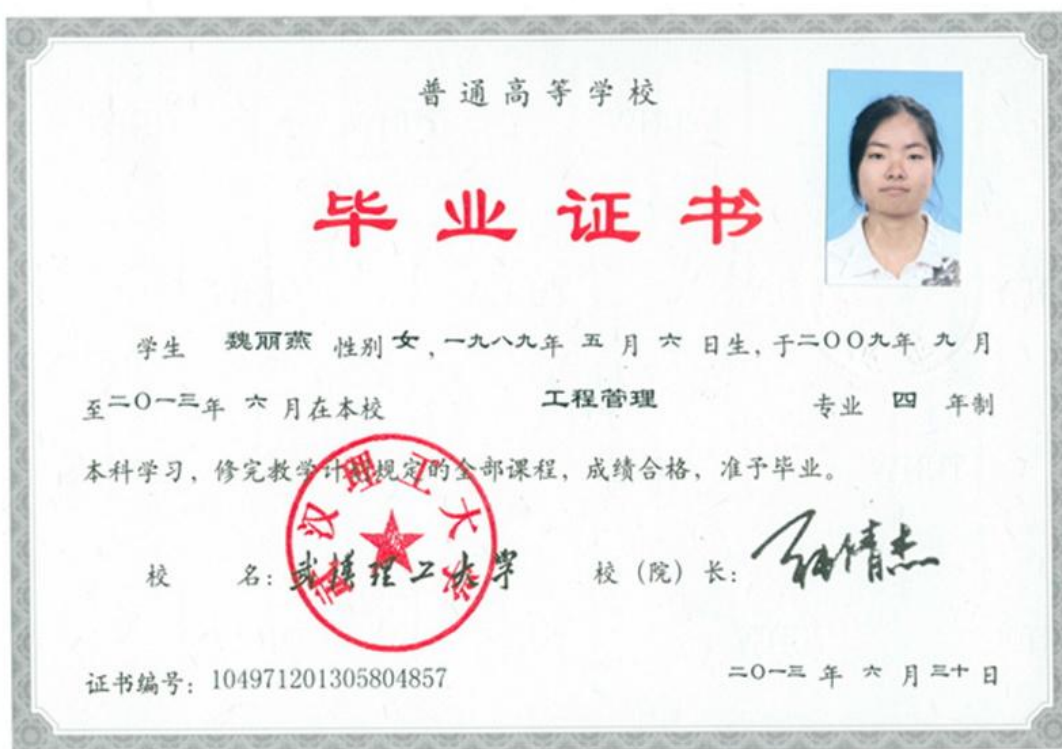 普通高等学校
毕业证书
学生 魏丽燕 性别 女，一九八九年 五 月 六 日生，于二〇〇九年 九 月
至二〇一三年 六 月在本校 工程管理 专业 四 年制
本科学习，修完教学计划规定的全部课程，成绩合格，准予毕业。
武汉理工大学
校 名：武汉理工大学 校（院）长：
证书编号：104971201305804857 二〇一三 年 六 月 三十 日